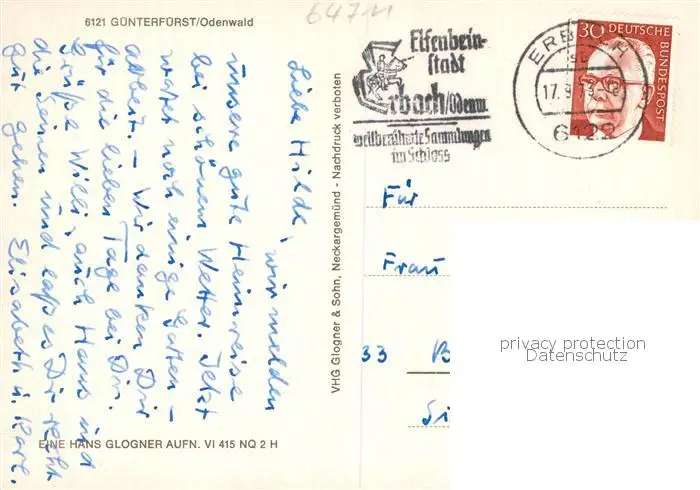 6121 GÜNTERFÜRST/Odenwald
64711
Liebe Hilde, wir melden
unsere gute Heimreise
bei schönem Wetter. Jetzt
wartet noch einige Garten-
arbeit. – Wir danken Dir
für die lieben Tage bei Dir.
Grüße Willi, auch Hans und
die Seinen und laß es Dir recht
gut gehen. Elisabeth u. Karl.
EINE HANS GLOGNER AUFN. VI 415 NQ 2 H
VHG Glogner & Sohn, Neckargemünd - Nachdruck verboten
Elfenbein-
stadt
Erbach/Odenw.
weltberühmte Sammlungen
im Schloss
ERBACH
17.9.73
6122
30 DEUTSCHE BUNDESPOST
Für
Frau
33 B
Si
privacy protection
Datenschutz